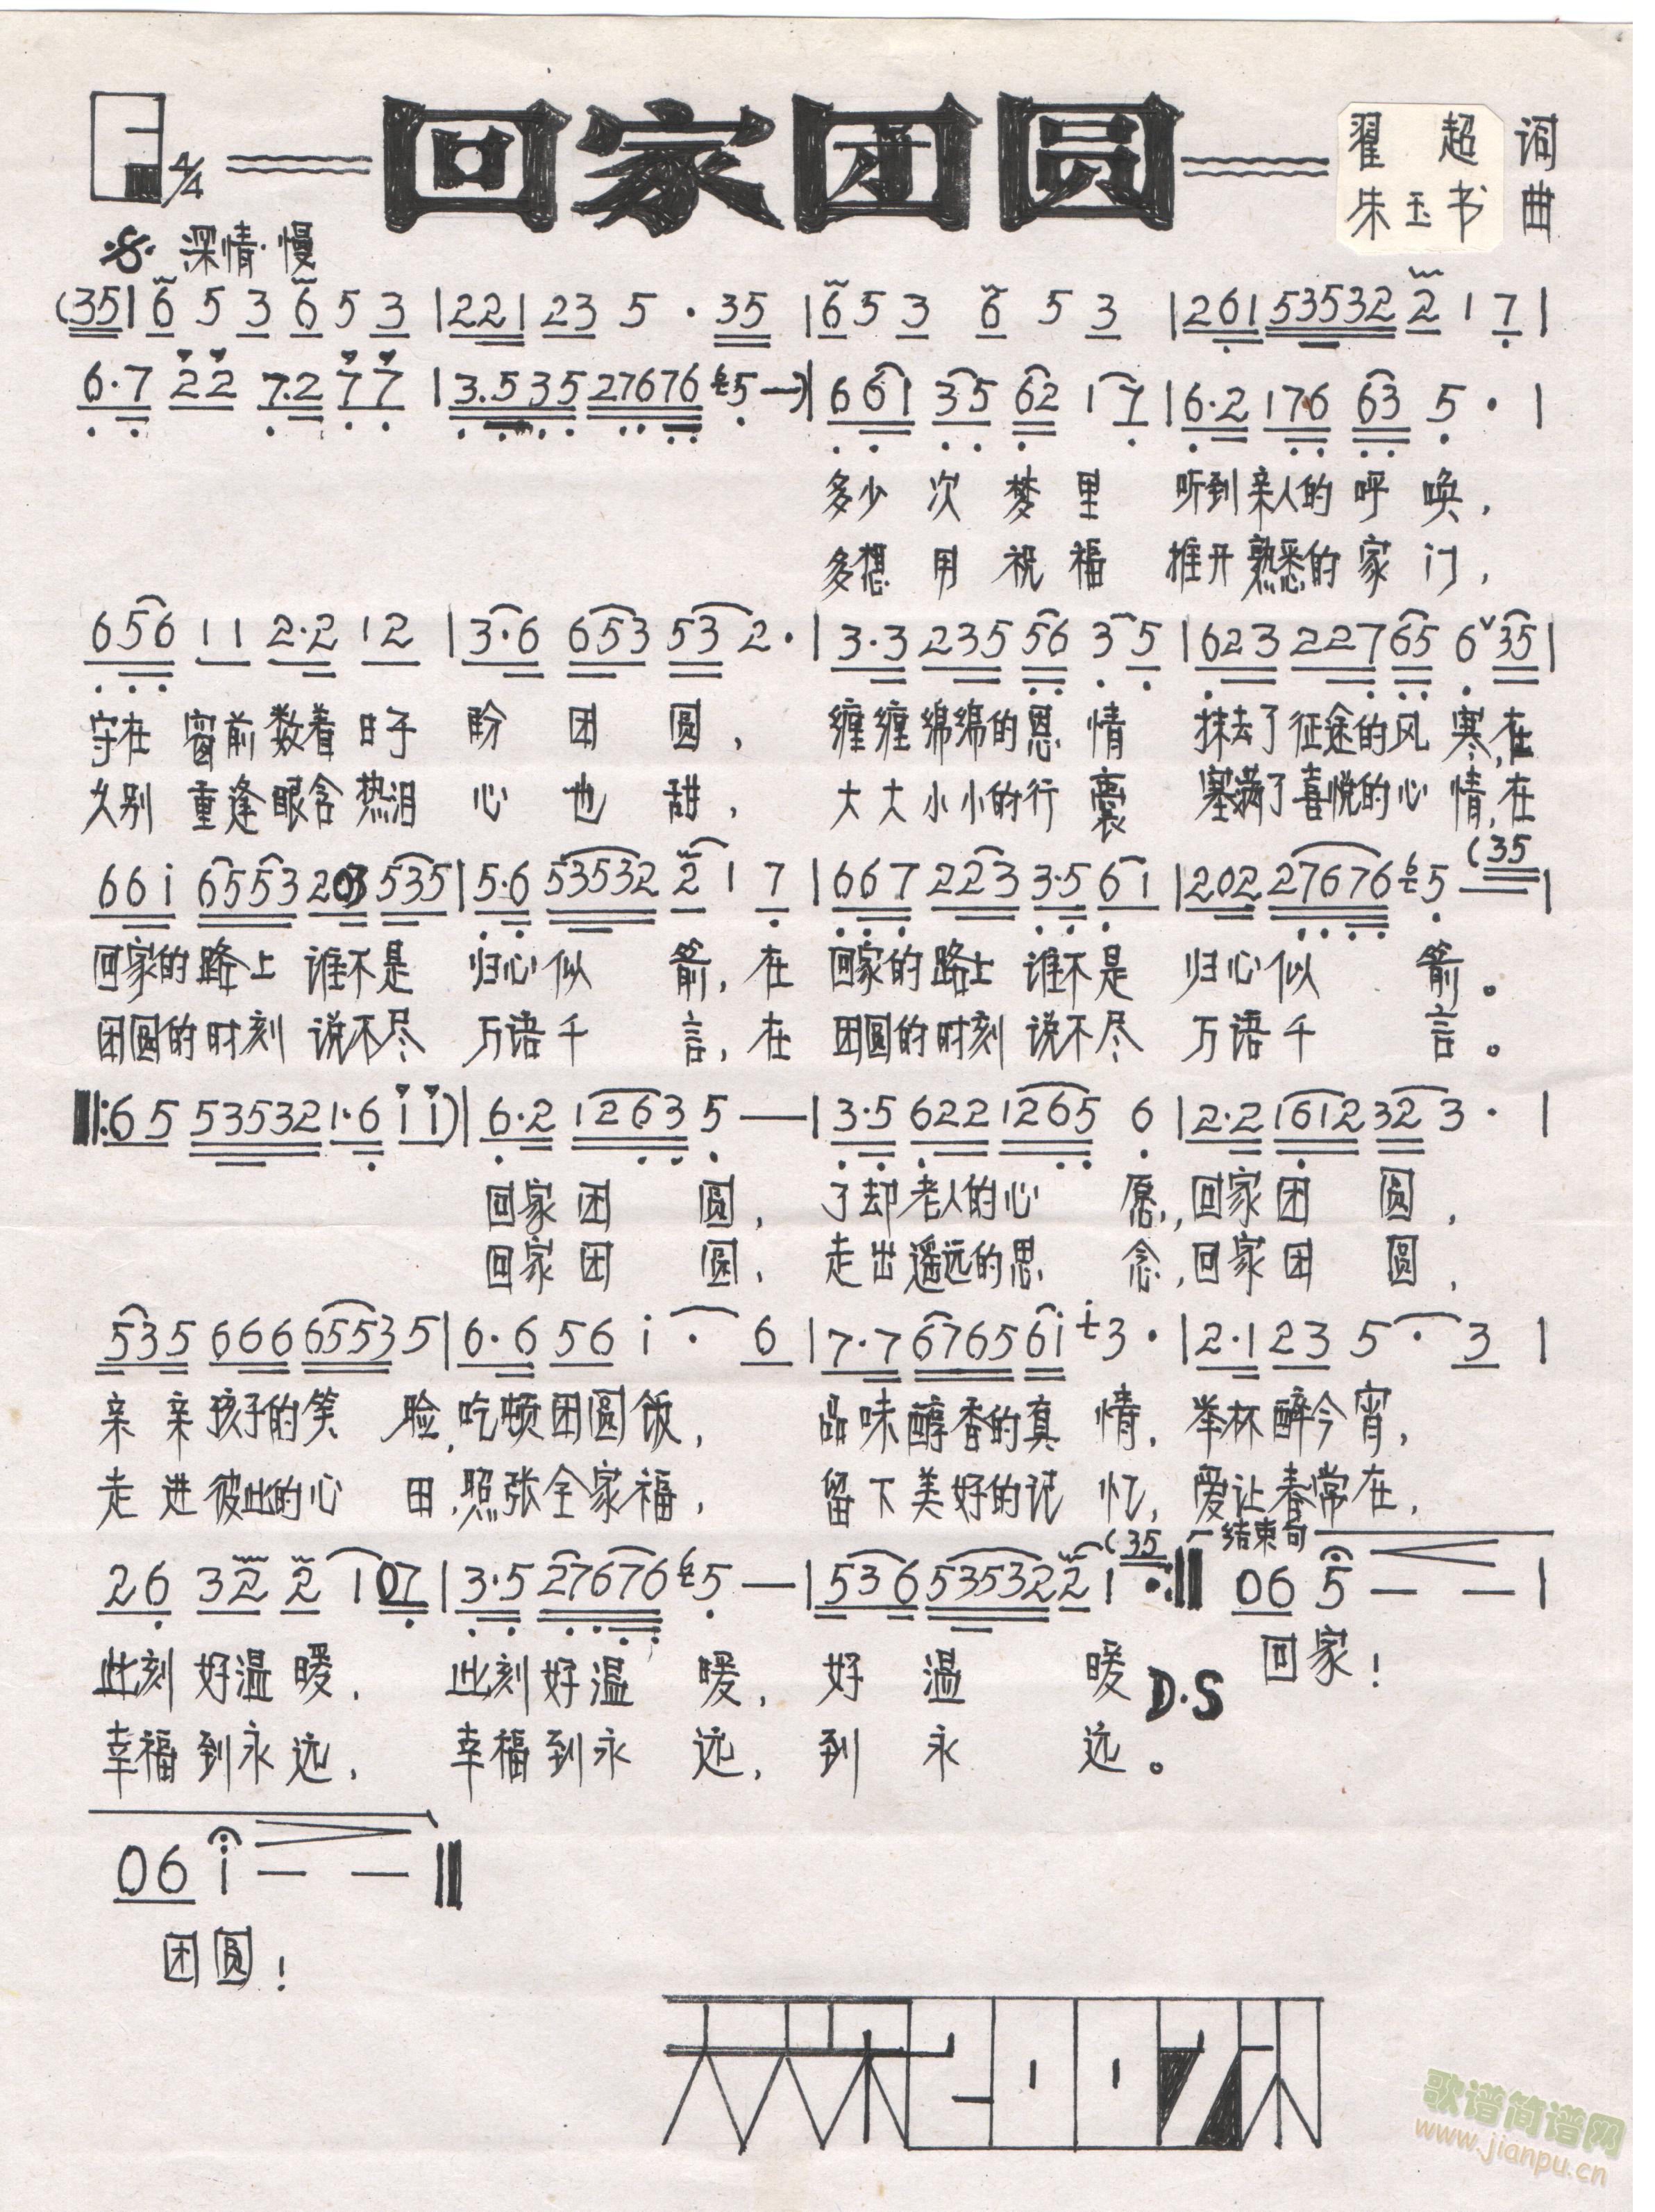 回家团圆
翟 超 词
朱玉书 曲
4/4
深情·慢
(35| 6 5 3 6 5 3 |221 23 5 · 35 |6 5 3 6 5 3 |261 53532 2 1 7|
6·7 22 7·2 77 |3.535 27676 5 —)|6 61 35 62 1 7|6·2 176 63 5 · |
多少 次 梦 里 听到亲人的 呼 唤,
多想 用 祝 福 推开熟悉的 家 门,
656 11 2·2 12 |3·6 653 53 2·|3·3 235 56 3 5|623 227 65 6 35|
守在 窗前 数着 日子 盼 团 圆, 缠缠绵绵的恩 情 抹去了征途的风 寒,在
久别 重逢 眼含 热泪 心 也 甜, 大大小小的行 囊 塞满了喜悦的心 情,在
66i 6553 203 535|5·6 53532 2 1 7|667 223 3·5 61|202 27676 5 (35|
回家的路上 谁不是 归心似 箭,在 回家的路上 谁不是 归心似 箭。
团圆的时刻 说不尽 万语千 言,在 团圆的时刻 说不尽 万语千 言。
‖:65 53532 1·6 i i)|6·2 1263 5 —|3·5 622 1265 6|2·2 1612 32 3 · |
回家团 圆, 了却老人的心 愿,回家团 圆,
回家团 圆, 走出遥远的思 念,回家团 圆,
535 666 6553 5|6·6 56 i · 6|7·7 6765 6i 3 ·|2·1 23 5 · 3|
亲 亲 孩子的笑 脸,吃顿团圆饭, 品味醇香的真 情,举杯醉今宵,
走 进 彼此的心 田,照张全家福, 留下美好的记 忆,爱让春常在,
结束句
26 32 2 1 07|3·5 27676 5 —|536 53532 2 1 (35 :‖ 06 5 — —|
此刻 好温 暖, 此刻 好温 暖, 好 温 暖 D·S 回家!
幸福 到永 远, 幸福 到永 远, 到 永 远。
06 i — —‖
团圆!
歌谱简谱网
www.jianpu.cn